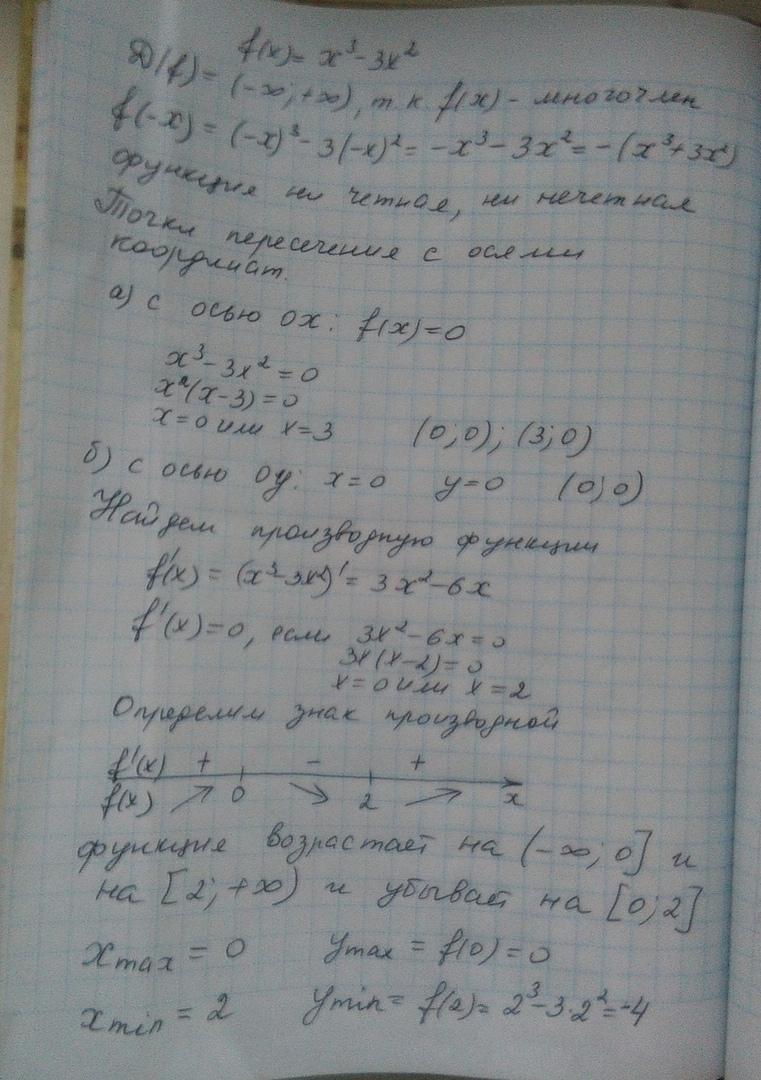 f(x) = x³ - 3x²
D(f) = (-∞; +∞), т.к. f(x) - многочлен
f(-x) = (-x)³ - 3(-x)² = -x³ - 3x² = -(x³ + 3x²)
функция ни четная, ни нечетная
Точки пересечения с осями
координат.
а) с осью ОХ: f(x) = 0
x³ - 3x² = 0
x²(x - 3) = 0
x = 0 или x = 3 (0; 0); (3; 0)
б) с осью Оу: x = 0 y = 0 (0; 0)
Найдем производную функции
f'(x) = (x³ - 3x²)' = 3x² - 6x
f'(x) = 0, если 3x² - 6x = 0
3x(x - 2) = 0
x = 0 или x = 2
Определим знак производной
f'(x) + - +
f(x) ↗ 0 ↘ 2 ↗ x
функция возрастает на (-∞; 0] и
на [2; +∞) и убывает на [0; 2]
x max = 0 y max = f(0) = 0
x min = 2 y min = f(2) = 2³ - 3·2² = -4